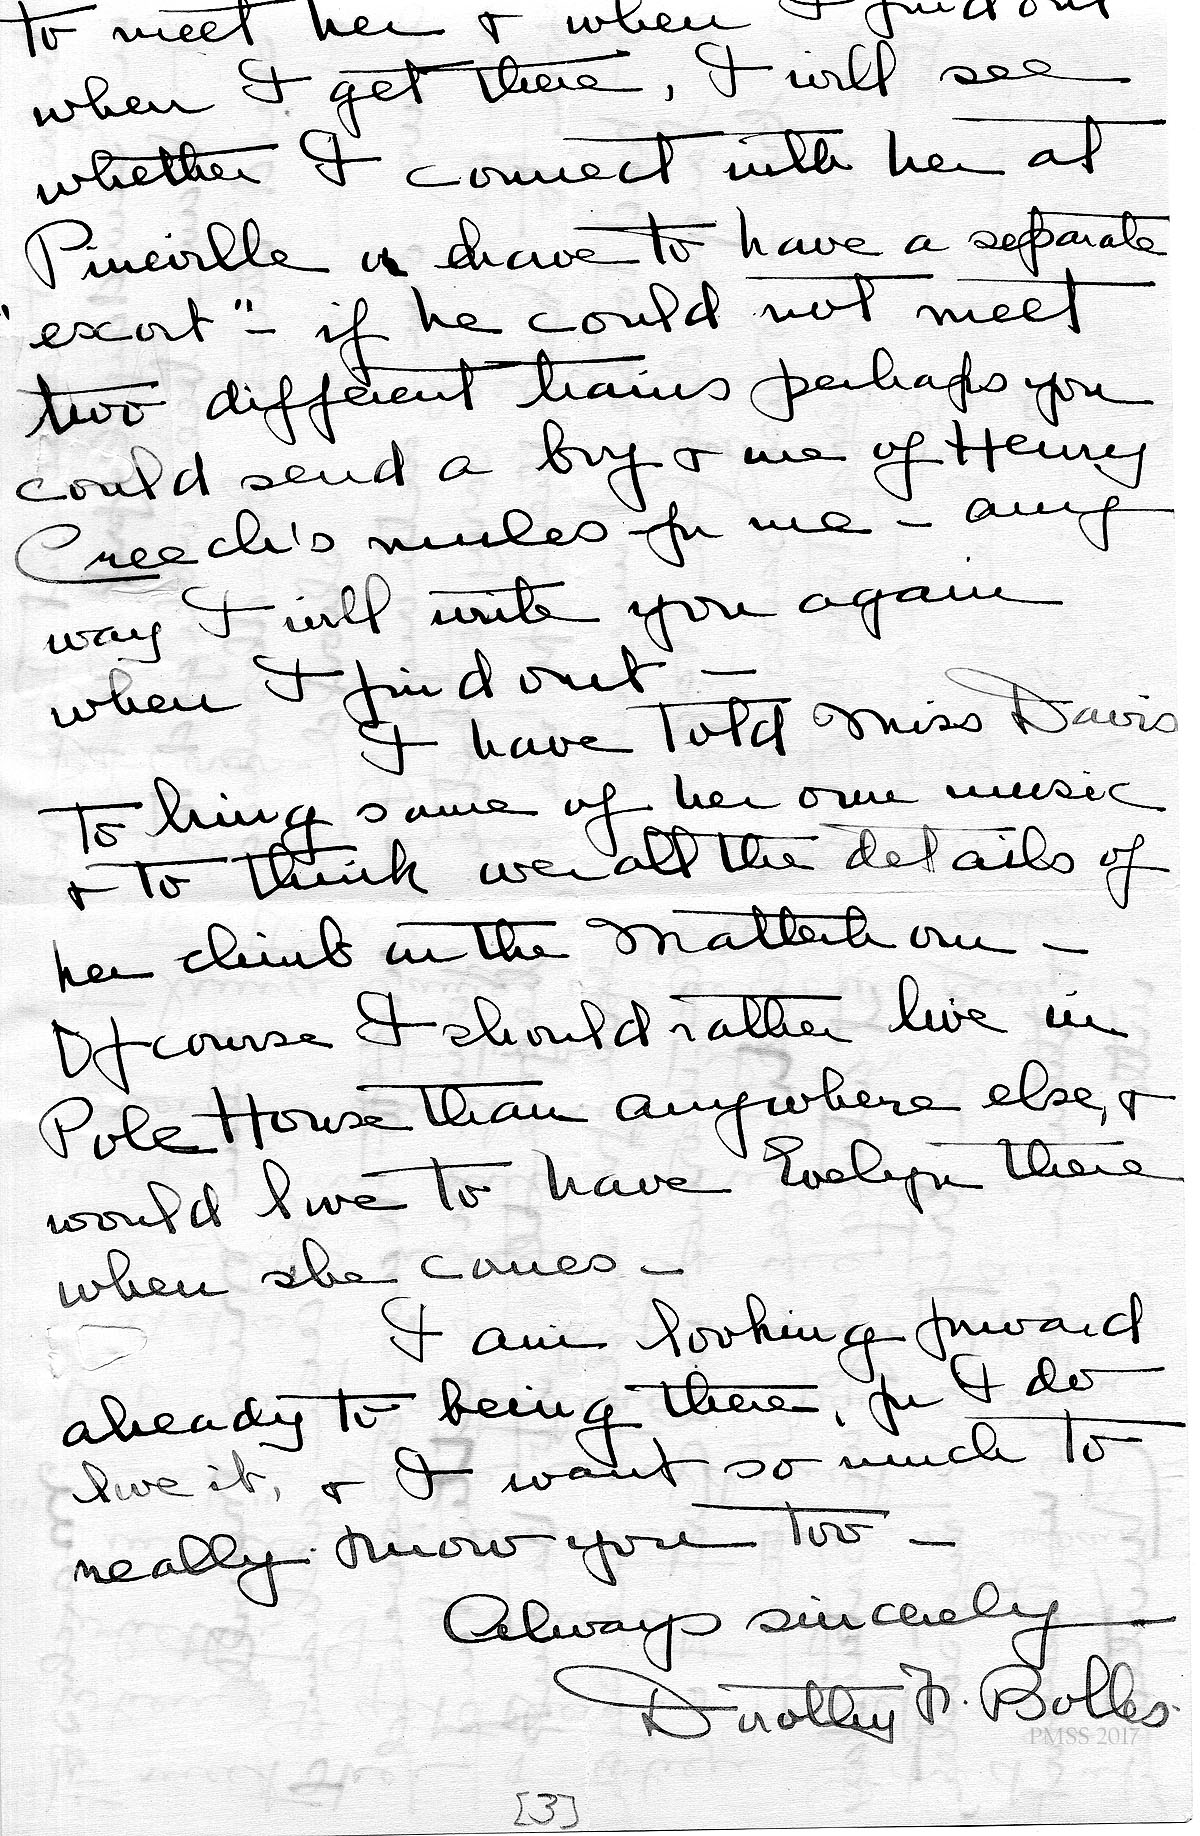 to meet her & when I find out
when I get there, I will see
whether I connect with her at
Pineville or have to have a separate
"excort" - if he could not meet
two different trains perhaps you
could send a boy & one of Henry
Creech's mules for me - any
way I will write you again
when I find out -
I have told Miss Davis
to bring some of her own music
& to think over all the details of
her climb on the Matterhorn -
Of course I should rather live in
Pole House than anywhere else, &
would love to have Evelyn there
when she comes -
I am looking forward
already to being there, for I do
love it, & I want so much to
really know you too -
Always sincerely
Dorothy F. Bolles.
PMSS 2017
[3]